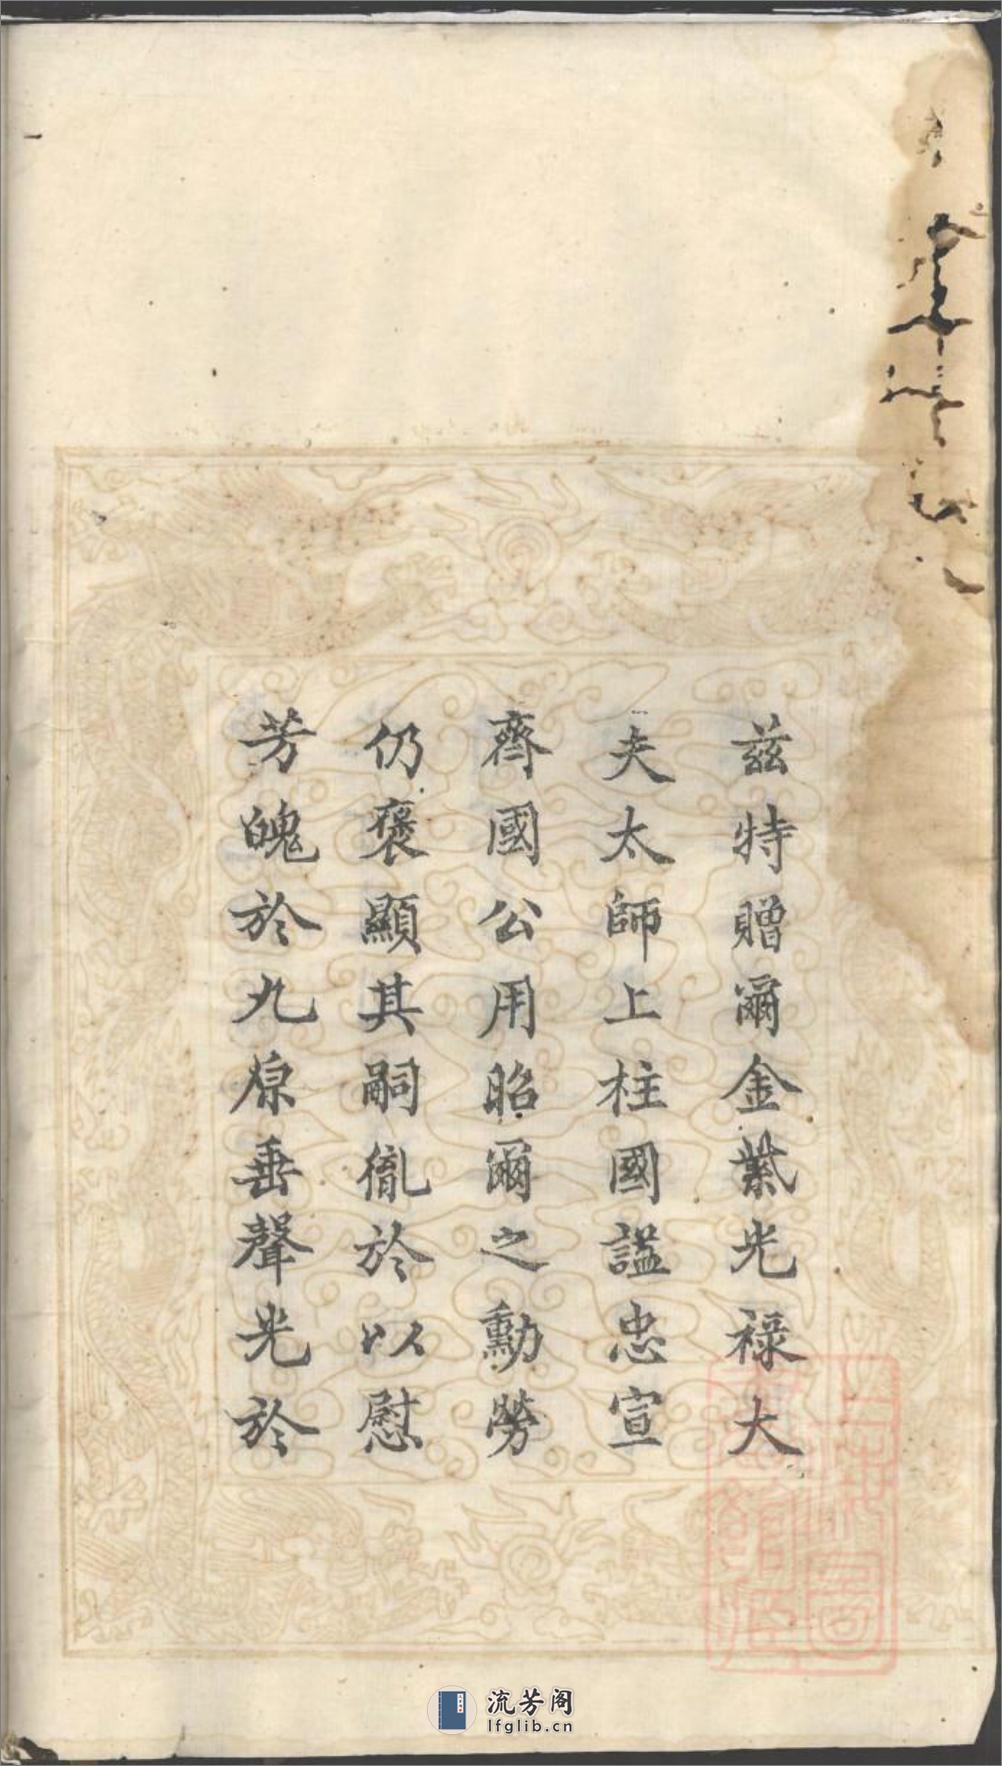 茲特贈爾金紫光祿大
夫太師上柱國謚忠宣
齊國公用昭爾之勳勞
仍褒顯其嗣胤於以慰
芳魄於九原垂聲光於
上海圖
書館藏
流芳阁
lfglib.cn